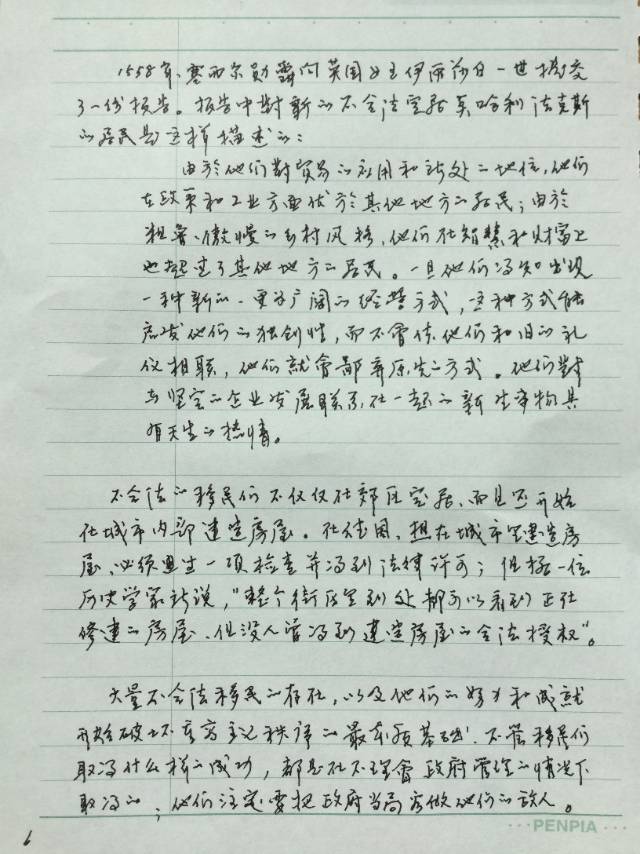 1558年、塞西尔勋爵向英国女王伊丽莎白一世提交
了一份报告。报告中對新的不合法定居英哈利法克斯
的居民是这样描述的：
由於他们對贸易的应用和所处的地位，他们
在政策和工业方面优於其他地方的居民；由於
粗鲁、傲慢的乡村风格，他们在智慧和财富上
也超过了其他地方的居民。一旦他们得知出现
一种新的、更为广阔的经营方式，这种方式能
启发他们的独创性，而不會使他们和旧的礼
仪相联，他们就會鄙弃原先的方式。他们對
与坚定的企业发展联系在一起的新生事物具
有天生的热情。
不合法的移民们不仅仅在郊区定居、而且还开始
在城市内部建造房屋。在法国，想在城市里建造房
屋、必须通过一项检查并得到法律许可；但据一位
历史学家所说，"整个街区里到处都可以看到正在
修建的房屋、但没人管得到建造房屋的合法授权"。
大量不合法移民的存在，以及他们的努力和成就
开始破坏重商主义秩序的最本质基础。不管移民们
取得什么样的成功，都是在不理會政府管理的情况下
取得的；他们注定要把政府当局看做他们的敌人。
PENPIA